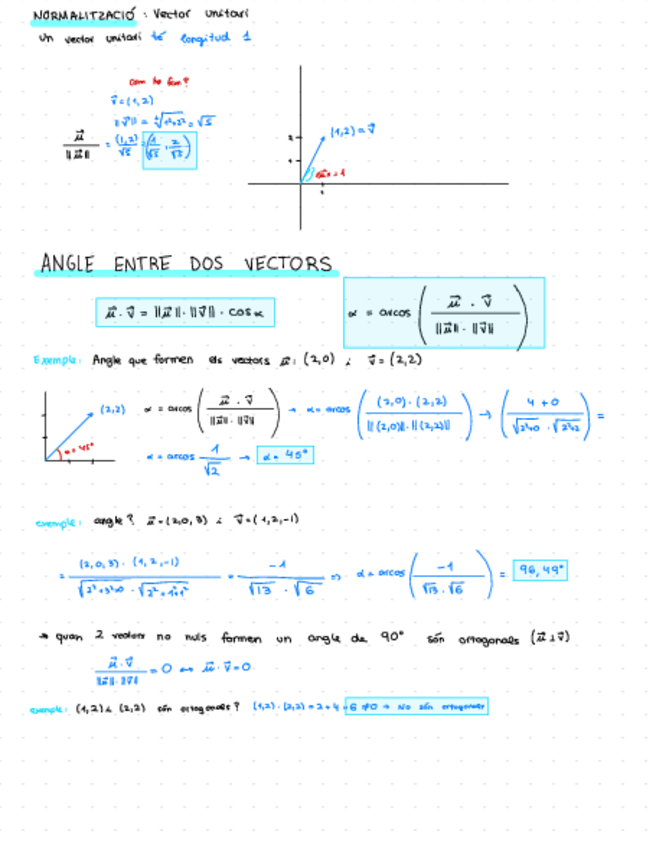 NORMALITZACIÓ: Vector unitari
Un vector unitari té longitud 1
com ho fem?
v⃗ = (1,2)
||v⃗|| = √1²+2² = √5
u⃗ / ||u⃗|| = (1,2)/√5 = (1/√5, 2/√5)
(1,2) = v⃗
2
1
1
ANGLE ENTRE DOS VECTORS
u⃗ · v⃗ = ||u⃗|| · ||v⃗|| · cos α
α = arcos (u⃗ · v⃗ / ||u⃗|| · ||v⃗||)
Exemple: Angle que formen els vectors u⃗: (2,0) i v⃗ = (2,2)
(2,2)
α = 45°
α = arcos (u⃗ · v⃗ / ||u⃗|| · ||v⃗||) → α = arcos ((2,0) · (2,2) / ||(2,0)|| · ||(2,2)||) → (4 + 0 / √2²+0 · √2²+2²) =
α = arcos 1/√2 → α = 45°
exemple: angle? u⃗ = (2,0,3) i v⃗ = (1,2,-1)
= (2,0,3) · (1,2,-1) / √2²+3²+0 · √2²+1²+1² = -1 / √13 · √6 => α = arcos (-1 / √13 · √6) = 96,49°
→ quan 2 vectors no nuls formen un angle de 90° són ortogonals (u⃗ ⊥ v⃗)
u⃗ · v⃗ / ||u⃗|| · ||v⃗|| = 0 ↔ u⃗ · v⃗ = 0
exemple: (1,2) i (2,2) són ortogonals? (1,2) · (2,2) = 2 + 4 = 6 ≠ 0 → No són ortogonals